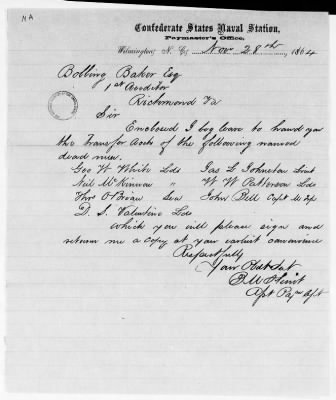 NA
Confederate States Naval Station,
Paymaster's Office,
Wilmington, N. C., Nov 28th 1864
Bolling Baker Esq
1st Auditor
Richmond Va
Sir
Enclosed I beg leave to hand you
the Transfer Accts of the following named
dead men.
Geo W White Lds Jas L Johnston Lieut
Neil McKinnon " W W Patterson Lds
Thos O'Brian Sea John Bell Capt
D. S. Valentine Lds
which you will please sign and
return me a copy at your earliest convenience
Respectfully
Your Obdt Svt
Asst Paym